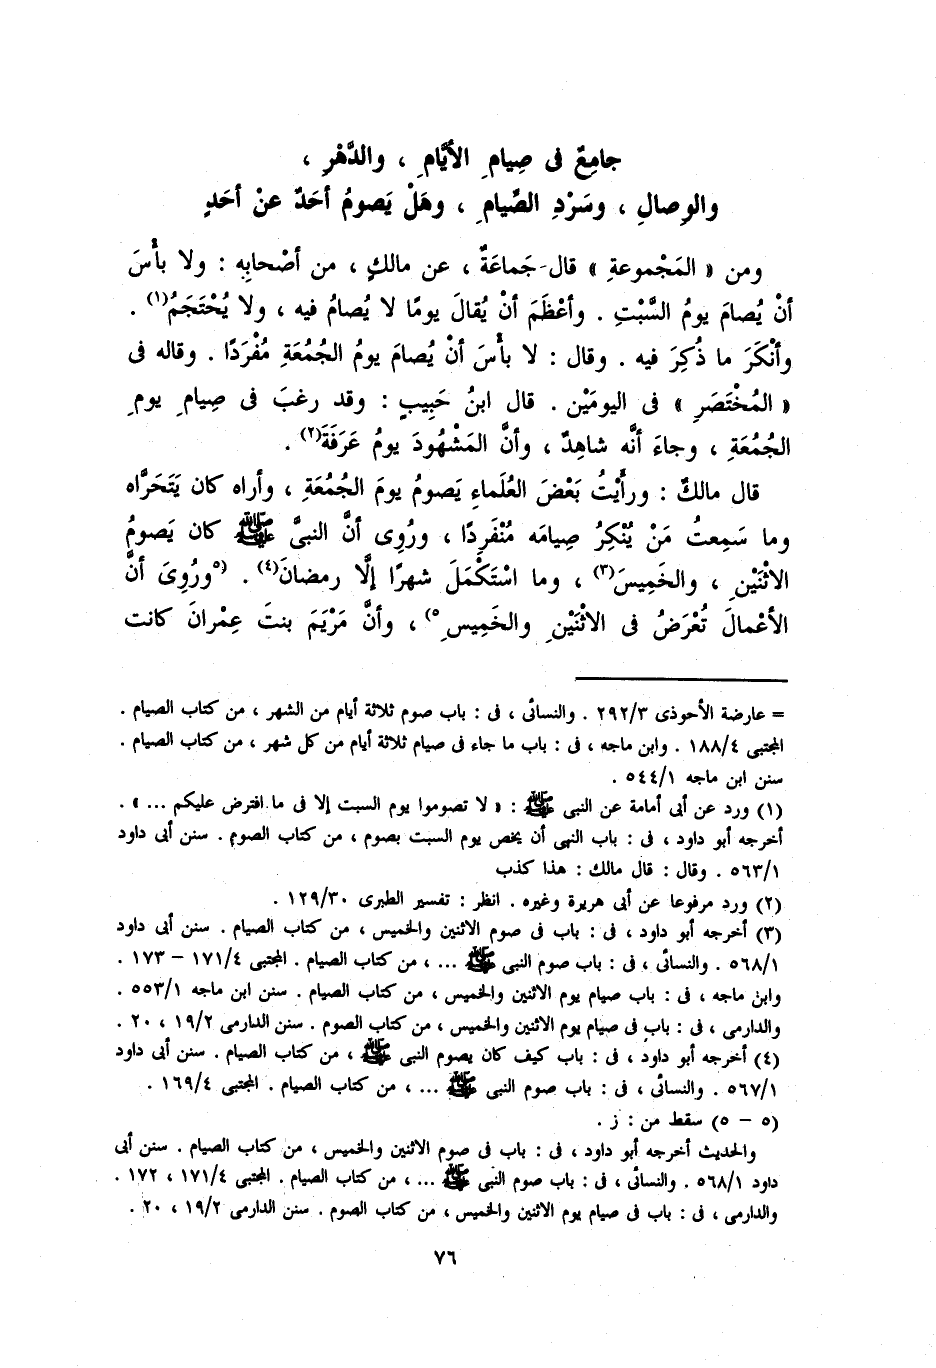 جامِعٌ فى صِيامِ الأيَّامِ ، والدَّهْرِ ،
والوِصالِ ، وسَرْدِ الصِّيامِ ، وهَلْ يَصومُ أحَدٌ عنْ أحَدٍ
ومن « المَجْموعةِ » قال جَماعَةٌ ، عن مالكٍ ، من أصْحابِه : ولا بأْسَ
أنْ يُصامَ يومُ السَّبْتِ . وأعْظَمَ أنْ يُقالَ يومًا لا يُصامُ فيه ، ولا يُحْتَجَمُ(١) .
وأنْكَرَ ما ذُكِرَ فيه . وقال : لا بأْسَ أنْ يُصامَ يومُ الجُمُعَةِ مُفْرَدًا . وقاله فى
« المُخْتَصَرِ » فى اليومَيْن . قال ابنُ حَبِيبٍ : وقد رغبَ فى صِيامِ يومِ
الجُمُعَةِ ، وجاءَ أنَّه شاهِدٌ ، وأنَّ المَشْهُودَ يومُ عَرَفَةَ(٢) .
قال مالكٌ : ورأَيْتُ بَعْضَ العُلَماءِ يَصومُ يومَ الجُمُعَةِ ، وأراه كان يَتَحَرَّاه
وما سَمِعتُ مَنْ يُنْكِرُ صِيامَه مُنْفَرِدًا ، ورُوِى أنَّ النبىَّ ﷺ كان يَصومُ
الاثْنَيْنِ ، والخَمِيسَ(٣) ، وما اسْتَكْمَلَ شهرًا إلَّا رمضانَ(٤) . (٥ورُوِىَ أنَّ
الأعْمالَ تُعْرَضُ فى الاثْنَيْنِ والخَمِيسِ٥) ، وأنَّ مَرْيَمَ بنتَ عِمْرانَ كانت
= عارضة الأحوذى ٢٩٢/٣ . والنسائى ، فى : باب صوم ثلاثة أيام من الشهر ، من كتاب الصيام .
المجتبى ١٨٨/٤ . وابن ماجه ، فى : باب ما جاء فى صيام ثلاثة أيام من كل شهر ، من كتاب الصيام .
سنن ابن ماجه ٥٤٤/١ .
(١) ورد عن أبى أمامة عن النبى ﷺ : « لا تصوموا يوم السبت إلا فى ما افترض عليكم ... » .
أخرجه أبو داود ، فى : باب النهى أن يخص يوم السبت بصوم ، من كتاب الصوم . سنن أبى داود
٥٦٣/١ . وقال : قال مالك : هذا كذب
(٢) ورد مرفوعا عن أبى هريرة وغيره . انظر : تفسير الطبرى ١٢٩/٣٠ .
(٣) أخرجه أبو داود ، فى : باب فى صوم الاثنين والخميس ، من كتاب الصيام . سنن أبى داود
٥٦٨/١ . والنسائى ، فى : باب صوم النبى ﷺ ... ، من كتاب الصيام . المجتبى ١٧١/٤ – ١٧٣ .
وابن ماجه ، فى : باب صيام يوم الاثنين والخميس ، من كتاب الصيام . سنن ابن ماجه ٥٥٣/١ .
والدارمى ، فى : باب فى صيام يوم الاثنين والخميس ، من كتاب الصوم . سنن الدارمى ١٩/٢ ، ٢٠ .
(٤) أخرجه أبو داود ، فى : باب كيف كان يصوم النبى ﷺ ، من كتاب الصيام . سنن أبى داود
٥٦٧/١ . والنسائى ، فى : باب صوم النبى ﷺ ... ، من كتاب الصيام . المجتبى ١٦٩/٤ .
(٥ – ٥) سقط من : ز .
والحديث أخرجه أبو داود ، فى : باب فى صوم الاثنين والخميس ، من كتاب الصيام . سنن أبى
داود ٥٦٨/١ . والنسائى ، فى : باب صوم النبى ﷺ ... ، من كتاب الصيام . المجتبى ١٧١/٤ ، ١٧٢ .
والدارمى ، فى : باب فى صيام يوم الاثنين والخميس ، من كتاب الصوم . سنن الدارمى ١٩/٢ ، ٢٠ .
٧٦